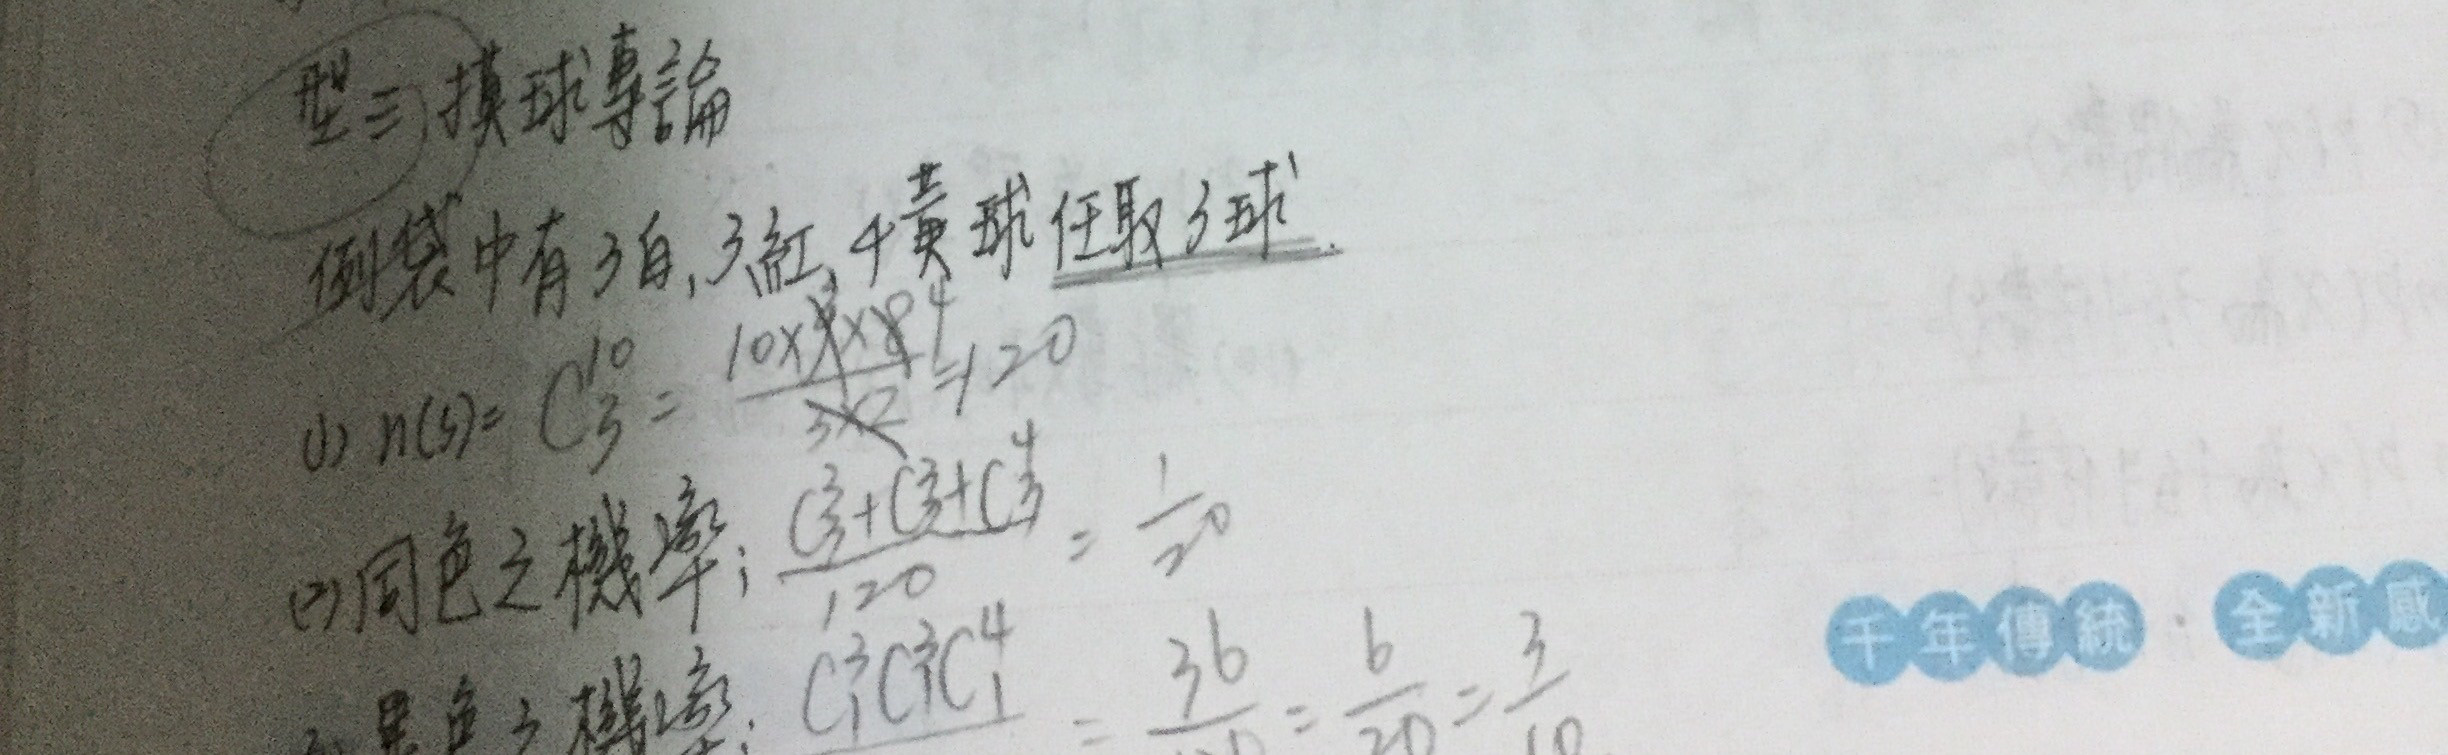 型三 摸球專論
例袋中有3白,3紅,4黃球任取3球.
(1) n(S)= C¹⁰₃ = 10×9×8 4 / 3×2 =120
(2)同色之機率: C³₃+C³₃+C⁴₃ / 120 = 1/20
異色之機率: C³₁C³₁C⁴₁ = 36/120 = 6/20 = 3/10
千年傳統·全新感